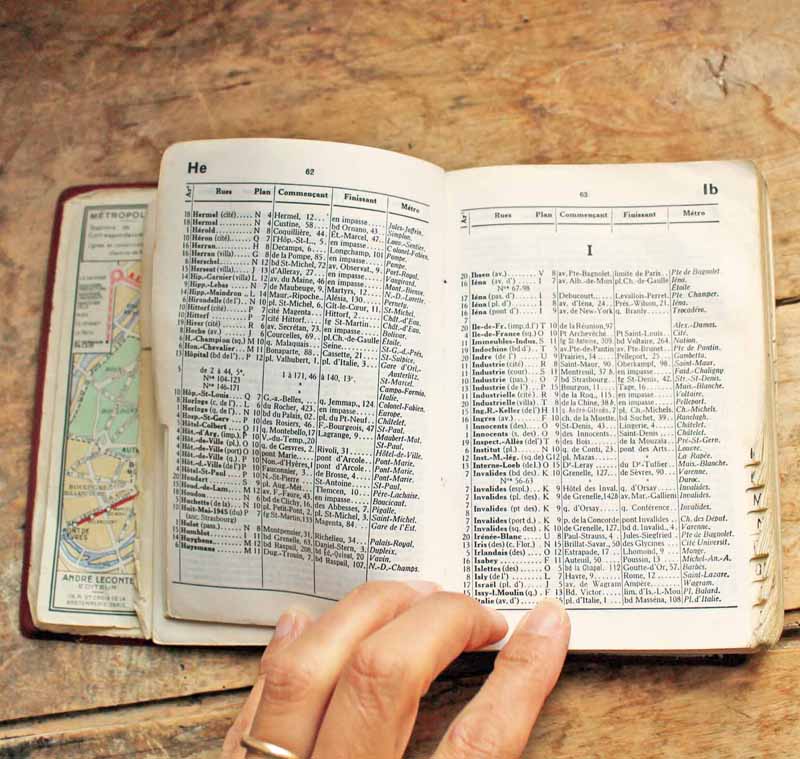 He
62
Arr
Rues Plan Commençant Finissant Métro
18 Hermel (cité) N 4 Hermel, 12 en impasse Jules-Joffrin.
18 Hermel N 4 Custine, 58 bd Ornano, 43 Simplon.
1 Hérold N 8 Coquillière, 44 Ét.-Marcel, 47
10 Héron (cité) Q 7 l'Hôp.-St-L., 5 en impasse
16 Herran H 8 Decamps, 6 Longchamp, 101 Pompe.
16 Herran (villa) G 8 de la Pompe, 85 en impasse Pompe.
Herschel N 12 bd St-Michel, 72 av. Observat., 9
15 Hersent (villa) J 13 d'Alleray, 27 en impasse Vaugirard.
14 Hipp.-Garnier (villa) L av. du Maine, 46 en impasse
9 Hipp.-Lebas N 7 de Maubeuge, 9 Martyrs, 12 N.-D.-Lorette.
14 Hipp.-Maindron L 14 Maur.-Ripoche Alésia, 130 Pernety.
6 Hirondelle (de l') N 10 pl. St-Michel, 6 Gît-le-Cœur, 11 St-Michel.
Hittorf (cité) P 7 cité Hittorf Hittorf, 2
Hittorf P 7 cité Hittorf fg St-Martin
19 Hiver (cité) R 6 av. Secrétan, 73 en impasse Bolivar.
8 Hoche (av.) I 6 Courcelles, 69 pl. Ch.-de-Gaulle Étoile
6 H.-Champion (q.) M 10 q. Malaquais Seine
6 Hon.-Chevalier M 11 Bonaparte, 88 Cassette, 21 St-Sulpice.
13 Hôpital (bd de l') P 12 pl. Valhubert, 1 pl. d'Italie, 3 Gare d'Orl.-
Austerlitz
5 de 2 à 44, 5e 1 à 171, 46 à 140, 13e. St-Marcel.
Nos 104-123 Campo-Formio.
Nos 146-171 Italie.
10 Hôp.-St-Louis Q 7 G.-a.-Belles q. Jemmap., 124 Colonel-Fabien.
8 Horloge (c. de l') L du Rocher, 423 en impasse Europe.
1 Horloge (q. de l') N 10 bd du Palais, 02 pl. du Pt-Neuf Châtelet.
4 Hosp.-St-Gerv. P 10 des Rosiers, 46 F.-Bourgeois, 47 St-Paul.
5 Hôtel-Colbert O 11 q. Montebello, 17 Lagrange, 9 Maubert-Mut.
4 Hôt.-d'Arg. (imp.) P V.-du-Temp., 20 St-Paul.
4 Hôt.-de-Ville (pl.) O q. de Gesvres, 2 Rivoli, 31 Hôtel-de-Ville.
4 Hôt.-de-Ville (port) O pont Marie pont d'Arcole Pont-Marie.
4 Hôt.-de-Ville (q.) P Non.-d'Hyères, 1 pont d'Arcole Pont-Marie.
4 Hôt.-d.-Ville (de l') P Fauconnier, 3 de Brosse, 4 Pont-Marie.
4 Hôtel-St-Paul P N.-St-Pierre St-Antoine St-Paul.
20 Houdart S 9 pl. Aug.-Mét. Tlemcen, 10 Père-Lachaise.
15 Houd-de-Lam. M 12 av. F.-Faure, 43 en impasse Boucicaut.
18 Houdon N 6 bd de Clichy, 16 des Abbesses, 7 Pigalle.
5 Huchette (de la) N 10 q. Petit-Pont, 2 pl. St-Michel, 3 Saint-Michel.
10 Huit-Mai-1945 (du) P fg St-Martin, 133 Magenta, 84 Gare de l'Est.
(anc. Strasbourg)
1 Hulot (pass.) N 8 Montpensier, 31 Richelieu, 34 Palais-Royal.
15 Humblot I bd Grenelle, 63 Daniel-Stern, 3 Dupleix.
14 Huyghens M bd Raspail, 208 bd Ed.-Quinet, 20 Vavin.
6 Huysmans M 11 Dug.-Trouin, 7 bd Raspail, 107 N.-D.-Champs.
63
Ib
Arr
Rues Plan Commençant Finissant Métro
I
20 Ibsen (av.) V 8 av. Pte-Bagnolet limite de Paris Pte de Bagnolet
16 Iéna (av. d') I 7 av. Alb.-de-Mun pl. Ch.-de-Gaulle Iéna.
Nos 67-98 Étoile
17 Iéna (pas. d') I 5 Debucourt Levallois-Perret. Pte. Champer.
16 Iéna (pl. d') I 8 av. d'Iéna, 24 Prés.-Wilson, 21 Iéna.
16 Iéna (pont d') I 9 av. de New-York q. Branly Trocadéro.
20 Ile-de-Fr. (imp. d l') T 10 de la Réunion, 97 Alex.-Dumas.
4 Ile-de-France (sq.) O Pt Archevêché Pt Saint-Louis Cité.
11 Immeubles-Indus. S 11 fg St-Antoine, 309 bd Voltaire, 264 Nation.
19 Indochine (bd d') T 5 av. Pte-de-Pantin av. Pte-Brunet Pte de Pantin.
20 Indre (de l') U 9 Prairies, 54 Pelleport, 25 Gambetta.
11 Industrie (cité) R 9 Saint-Maur, 90 Oberkampf, 98 Saint-Maur.
11 Industrie (cour) S 11 Montreuil, 37 b. en impasse Faid.-Chaligny
10 Industrie (pas.) O 7 bd Strasbourg fg St-Denis, 42 Str.-St-Denis.
13 Industrie (de l') P 15 Bourgon, 11 Tage, 16 Mais.-Blanche.
11 Industrielle (cité) R 9 de la Roq., 115 en impasse Voltaire.
20 Industrielle (villa) T 8 de la Chine, 38 b. en impasse Pelleport.
15 Ing.-R.-Keller (de l') H 11 q. André-Citroën, 7 pl. Ch. Michels Ch.-Michels.
16 Ingres (av.) F ch. de la Muette bd Suchet, 39 Ranelagh.
1 Innocents (des) O 9 St-Denis, 43 Lingerie, 4 Châtelet.
1 Innocents (s. des) O 9 des Innocents Saint-Denis Châtelet.
19 Inspect.-Allès (de l') T du Bois de la Mouzaïa Pré-St-Gerv.
6 Institut (pl.) N 10 q. de Conti, 23 pont des Arts Louvre.
12 Inst.-M.-lég. (sq. de) Q 12 pl. Mazas La Rapée.
13 Interne-Loeb O 15 P.-Leray du Dr-Tuffier Mais.-Blanche.
7 Invalides (bd des) K 10 Grenelle, 127 de Sèvres, 93 Varenne.
Nos 56-63 Duroc.
7 Invalides (espl.) K 9 Hôtel des Inval. q. d'Orsay Invalides.
7 Invalides (pl. des) K 9 de Grenelle, 1428 av. Mar.-Gallieni Invalides.
7 Invalides (pt des) K 9 q. d'Orsay q. Conférence Invalides.
7 Invalides (port d.) K 9 p. de la Concorde pont Invalides Ch. des Déput.
7 Invalides (sq. des) K 10 de Grenelle, 127 bd d. Invalid., 4 Varenne.
20 Irénée-Blanc U 8 Paul-Strauss, 4 Jules-Siegfried Pte de Bagnolet
13 Iris (des) (c. Flor.) N 15 Brillat-Savar., 50 des Glycines Cité Universit.
5 Irlandais (des) O 12 Estrapade, 17 Lhomond, 9 Monge.
16 Isabey F 11 Auteuil, 50 Poussin, 13 Michel-An.-A.
18 Islettes (des) O bd la Chapel. 112 Goutte-d'Or, 57 Barbès.
8 Isly (de l') L 7 Havre, 9 Rome, 12 Saint-Lazare.
17 Israël (pl. d') I 5 av. de Wagram Ampère Wagram.
15 Issy-l.Moulin (q.) F 13 Bd. Victor lim. d'Is.-L-Mou Pl. Balard.
Italie (av. d') pl. d'Italie, 1 bd Masséna, 108 Pl. d'Italie.
MÉTROPOL
ANDRÉ LECONTE
ÉDITEUR